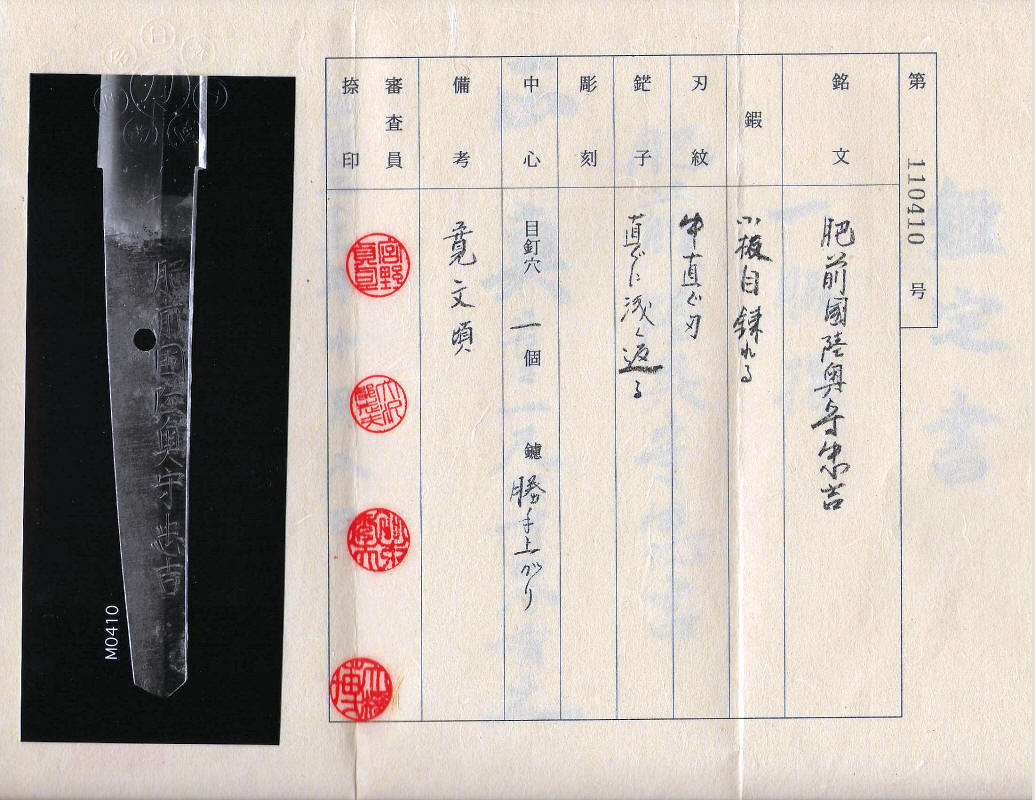 第 110410 号
銘文
肥前國陸奥守忠吉
鍜
小板目錬れる
刃紋
中直ぐ刃
鋩子
直ぐに浅く返る
彫刻
中心
目釘穴 一個
鑢 勝手上がり
備考
寛文頃
審査員
捺印
肥前國陸奥守忠吉
M0410